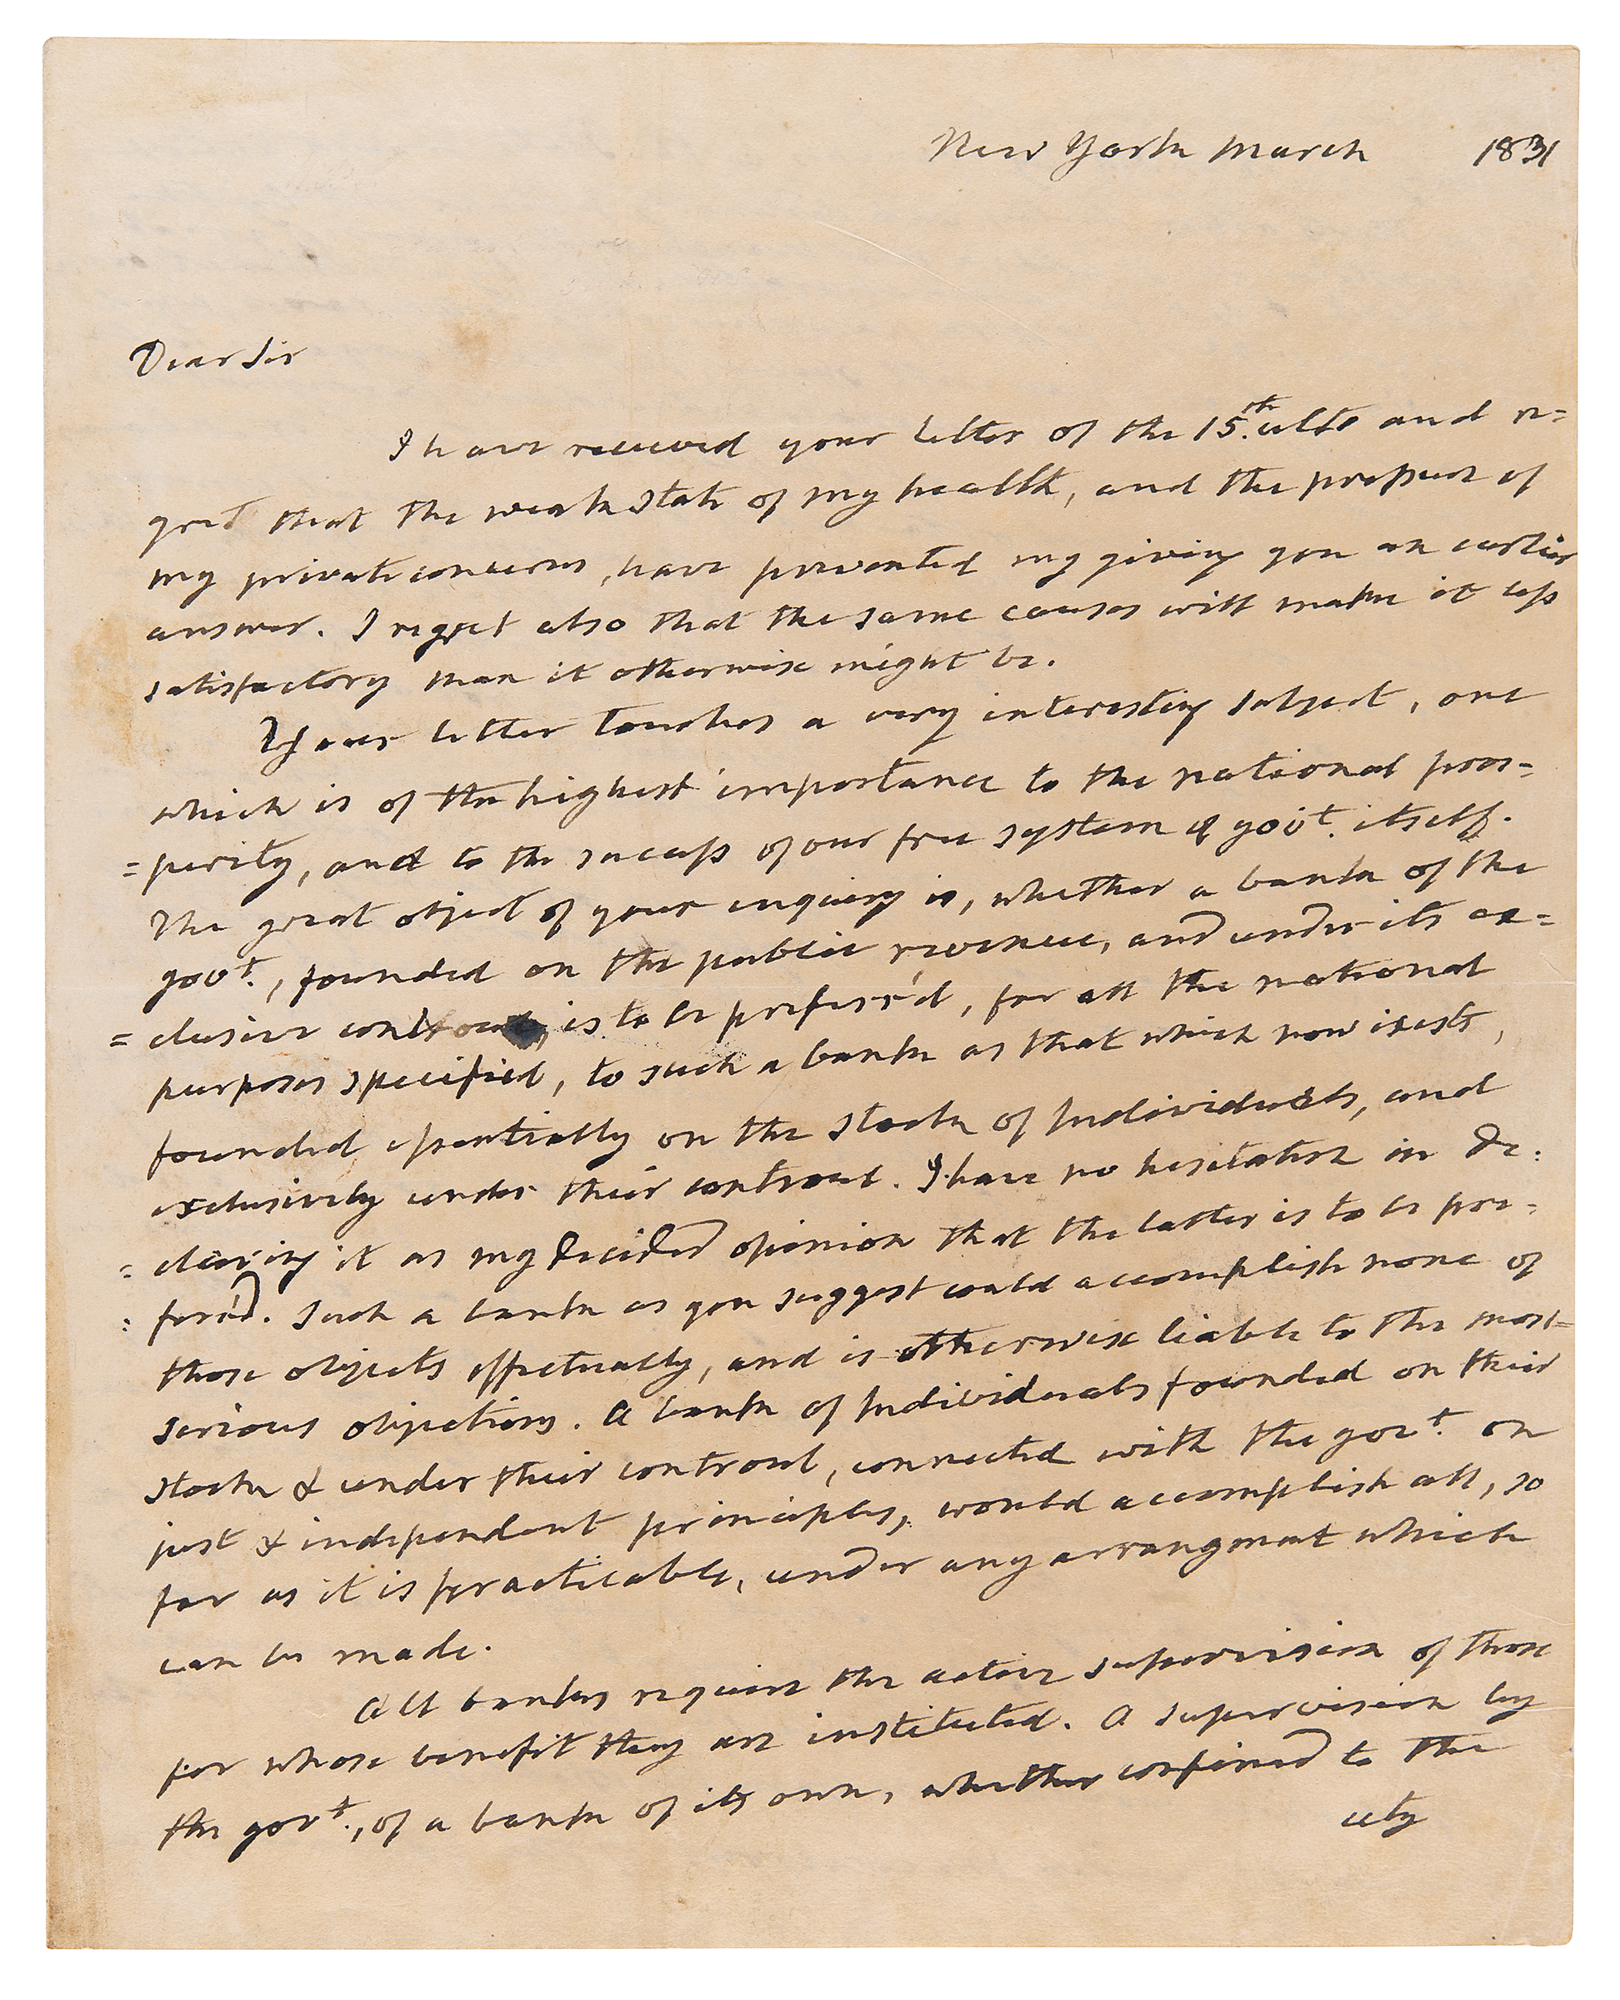 New York March 1831
Dear Sir
I have received your letter of the 15th. ulto and re=
gret that the weak state of my health, and the pressure of
my private concerns, have prevented my giving you an earlier
answer. I regret also that the same causes will make it less
satisfactory than it otherwise might be.
Your letter touches a very interesting subject, one
which is of the highest importance to the national pros=
=perity, and to the success of our free system of govt. itself.
The great object of your enquiry is, whether a bank of the
govt., founded on the public revenue, and under its ex=
=clusive controul, is to be preferr'd, for all the national
purposes specified, to such a bank as that which now exists,
founded essentially on the stock of Individuals, and
exclusively under their controul. I have no hesitation in de:
:claring it as my decided opinion that the latter is to be pre:
:ferr'd. Such a bank as you suggest could accomplish none of
those objects effectually, and is otherwise liable to the most
serious objections. A bank of Individuals founded on their
stock & under their controul, connected with the govt. on
just & independent principles, would accomplish all, so
far as it is practicable, under any arrangment which
can be made.
All banks require the active supervision of those
for whose benefit they are instituted. A supervision by
the govt., of a bank of its own, whether confined to the
city